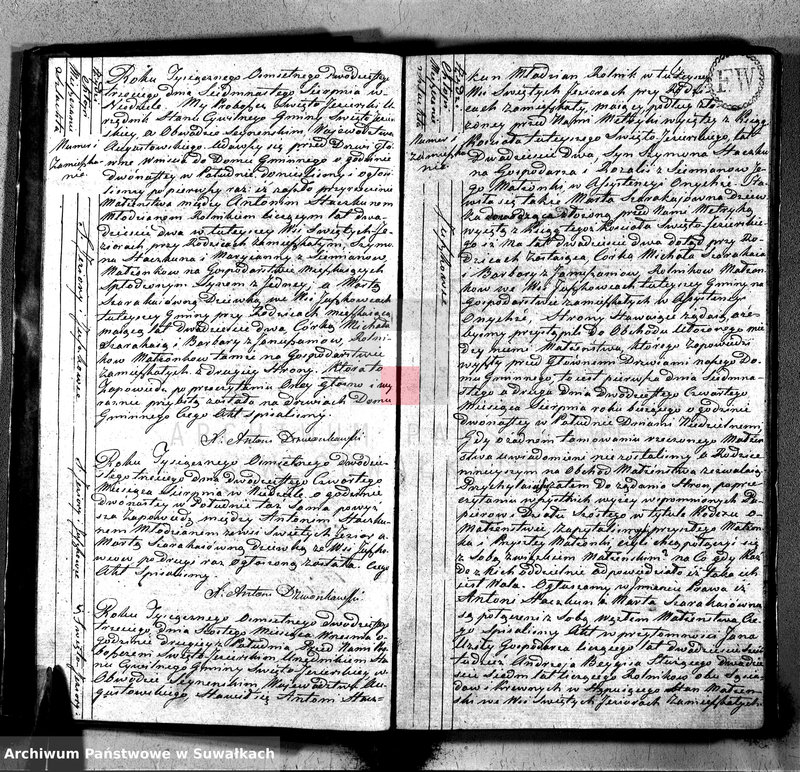 Roku Tysiącznego Ośmsetnego Dwudziestego
trzeciego dnia Siedmnastego Sierpnia w
Niedzielę. My Proboszcz Swięto Jezierski U-
rzędnik Stanu Cywilnego Gminy Swięto Jezier-
skiey, w Obwodzie Seynenskim, Wojewodztwa
Augustowskiego. Udawszy się przed Drzwi Głó-
wne wniścia do Domu Gminnego o godzinie
dwónastey w Południe, donieśliśmy i ogłosi-
liśmy po pierwszy raz iż zaszło przyrzeczenie
Małżeństwa między Antonim Staczkunem
Młodzianem Rolnikiem liczącym lat dwa-
dzieścia dwa w tuteyszey Wsi Swiętych Je-
ziorach, przy Rodzicach zamieszkałym, Szymo-
na Staczkuna i Maryianny z Siemianow,
Małżonkow na Gospodarstwie Mieszkaiących
Spłodzonym Synem z Jedney, a Martą
Szarakaiówną Dziewką we Wsi Juszkowcach
tuteyszey Gminy przy Rodzicach mieszkaiącą
maiącą lat dwadzieścia dwa, Córką Michała
Szarakaia i Barbary z Janussamow, Rolni-
kow Małżonkow tamże na Gospodarstwie
zamieszkałych z drugiey Strony. Która to
Zapowiedz po przeczytaniu Oney głośno i wy
raznie przybita została na drzwiach Domu
Gminnego Czego Akt Spisaliśmy.
X. Antoni Dzwonkowski
Roku Tysiącznego Ośmsetnego Dwudzie-
stego trzeciego dnia Dwudziestego Czwartego
Miesiąca Sierpnia w Niedzielę, o godzinie
dwónastey w Południe taż Sama powyż-
sza zapowiedz między Antonim Staczku-
nem Młodzianem ze Wsi Swiętych Jezior a
Martą Szarakaiówną dziewką ze Wsi Juszko
wcow po drugi raz ogłoszoną została. Czego
Akt Spisaliśmy.
X. Antoni Dzwonkowski
Roku Tysiącznego Ośmsetnego Dwudziestego
trzeciego, dnia Szóstego Miesiąca Wrzesnia o-
godzinie drugiey z Południa. Przed Nami Pro
boszczem Swięto Jezierskim Urzędnikiem Sta-
nu Cywilnego Gminy Swięto Jezierskiey w
Obwodzie Seynenskim Wojewodztwie Au-
gustowskiego Stawił się Antoni Stacz-
kun Młodzian Rolnik w tuteyszey
Wsi Swiętych Jeziorach przy Rodzi-
cach zamieszkały, maiący podług zło-
żoney przed Nami Metryki wyiętey z Xiąg
Kościoła tuteyszego Swięto Jezierskiego, lat
Dwadzieścia Dwa, Syn Szymona Staczku
na Gospodarza i Rozalii z Siemianow Je-
go Małżonki w Assystencyi Onychże. Sta-
wiła się także Marta Szarakaiówna Dziew
ka dowodząca złożoną przed Nami Metryką
wyiętą z Xiąg tegoż Kościoła Swięto Jezierskie-
go iż ma lat dwadzieścia dwa dotąd przy Ro-
dzicach zostaiąca, Córka Michała Szarakaia
i Barbary z Janussamow, Rolnikow Małżon-
kow we Wsi Juszkowcach tuteyszey Gminy na
Gospodarstwie zamieszkałych w Assystencyi
Onychże, Strony Stawaiące żądaią, ażeb
yśmy przystąpili do Obchodu Ułożonego mie
dzy niemi Małżeństwa, którego zapowiedzi
wyszły przed głównemi Drzwiami naszego Do-
mu Gminnego, to iest pierwsza dnia Siedmna-
stego a druga dnia Dwudziestego Czwartego
Miesiąca Sierpnia roku bieżącego o godzinie
dwónastey w Południe Dniami Niedzielnemi,
Gdy o żadnem tamowaniu rzeczonego Małżeń-
stwa uwiadomieni nie zostaliśmy, a Rodzice
ninieyszym na Obchód Małżeństwa zezwalaią,
Przychylaiąc się zatem do żądania Stron, po prze-
czytaniu wszystkich wyżey wspomnionych Pa-
pierow i Działu Szóstego w tytule Kodexu o-
Małżeństwie zapytaliśmy przyszłego Małżon-
ka i Przyszłey Małżonki, czyli chcą połączyć się
z Sobą związkiem Małżeńskim? na Co gdy Każ
de z Nich oddzielnie odpowiedziało iż taka ich
iest Wola. Ogłaszamy w Jmieniu Prawa iż
Antoni Staczkun z Marta Szarakaiówną
są połączeni z Sobą węzłem Małżeństwa Cze-
go Spisaliśmy Akt w przytomności Jana
Gospodarza liczącego lat dwadzieścia Sześć
tudzież Andrzeja liczącego dwadzie-
ścia Siedm lat liczącego Rolnikow obu Sąsia-
dow i Krewnych w Stan Małżeń-
ski we Wsi Swiętych Jeziorach zamieszkałych
EW
Archiwum Państwowe w Suwałkach